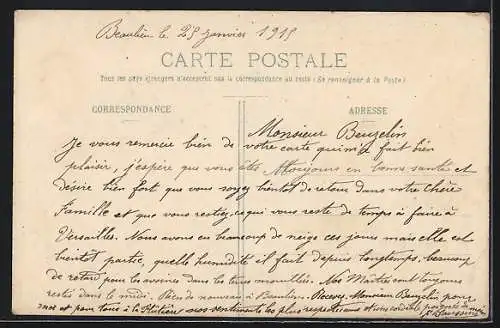 Beaulieu le 25 janvier 1915
CARTE POSTALE
Tous les pays étrangers n'acceptent pas la correspondance au recto (Se renseigner à la Poste)
CORRESPONDANCE
ADRESSE
Monsieur Beuzelin
Je vous remercie bien de votre carte qui m'a fait bien
plaisir, j'espère que vous êtes toujours en bonne santé et
désire bien fort que vous soyez bientôt de retour dans votre chère
Famille et que vous restiez, ce qui vous reste de temps à faire à
Versailles. Nous avons eu beaucoup de neige ces jours mais elle est
bientôt partie, quelle humidité il fait depuis longtemps, beaucoup
de retard pour les avoines dans les terres mouillées. Nos Maîtres sont toujours
restés dans le midi. Rien de nouveau à Beaulieu. Recevez Monsieur Beuzelin pour
moi et pour tous à la nos sentiments les plus